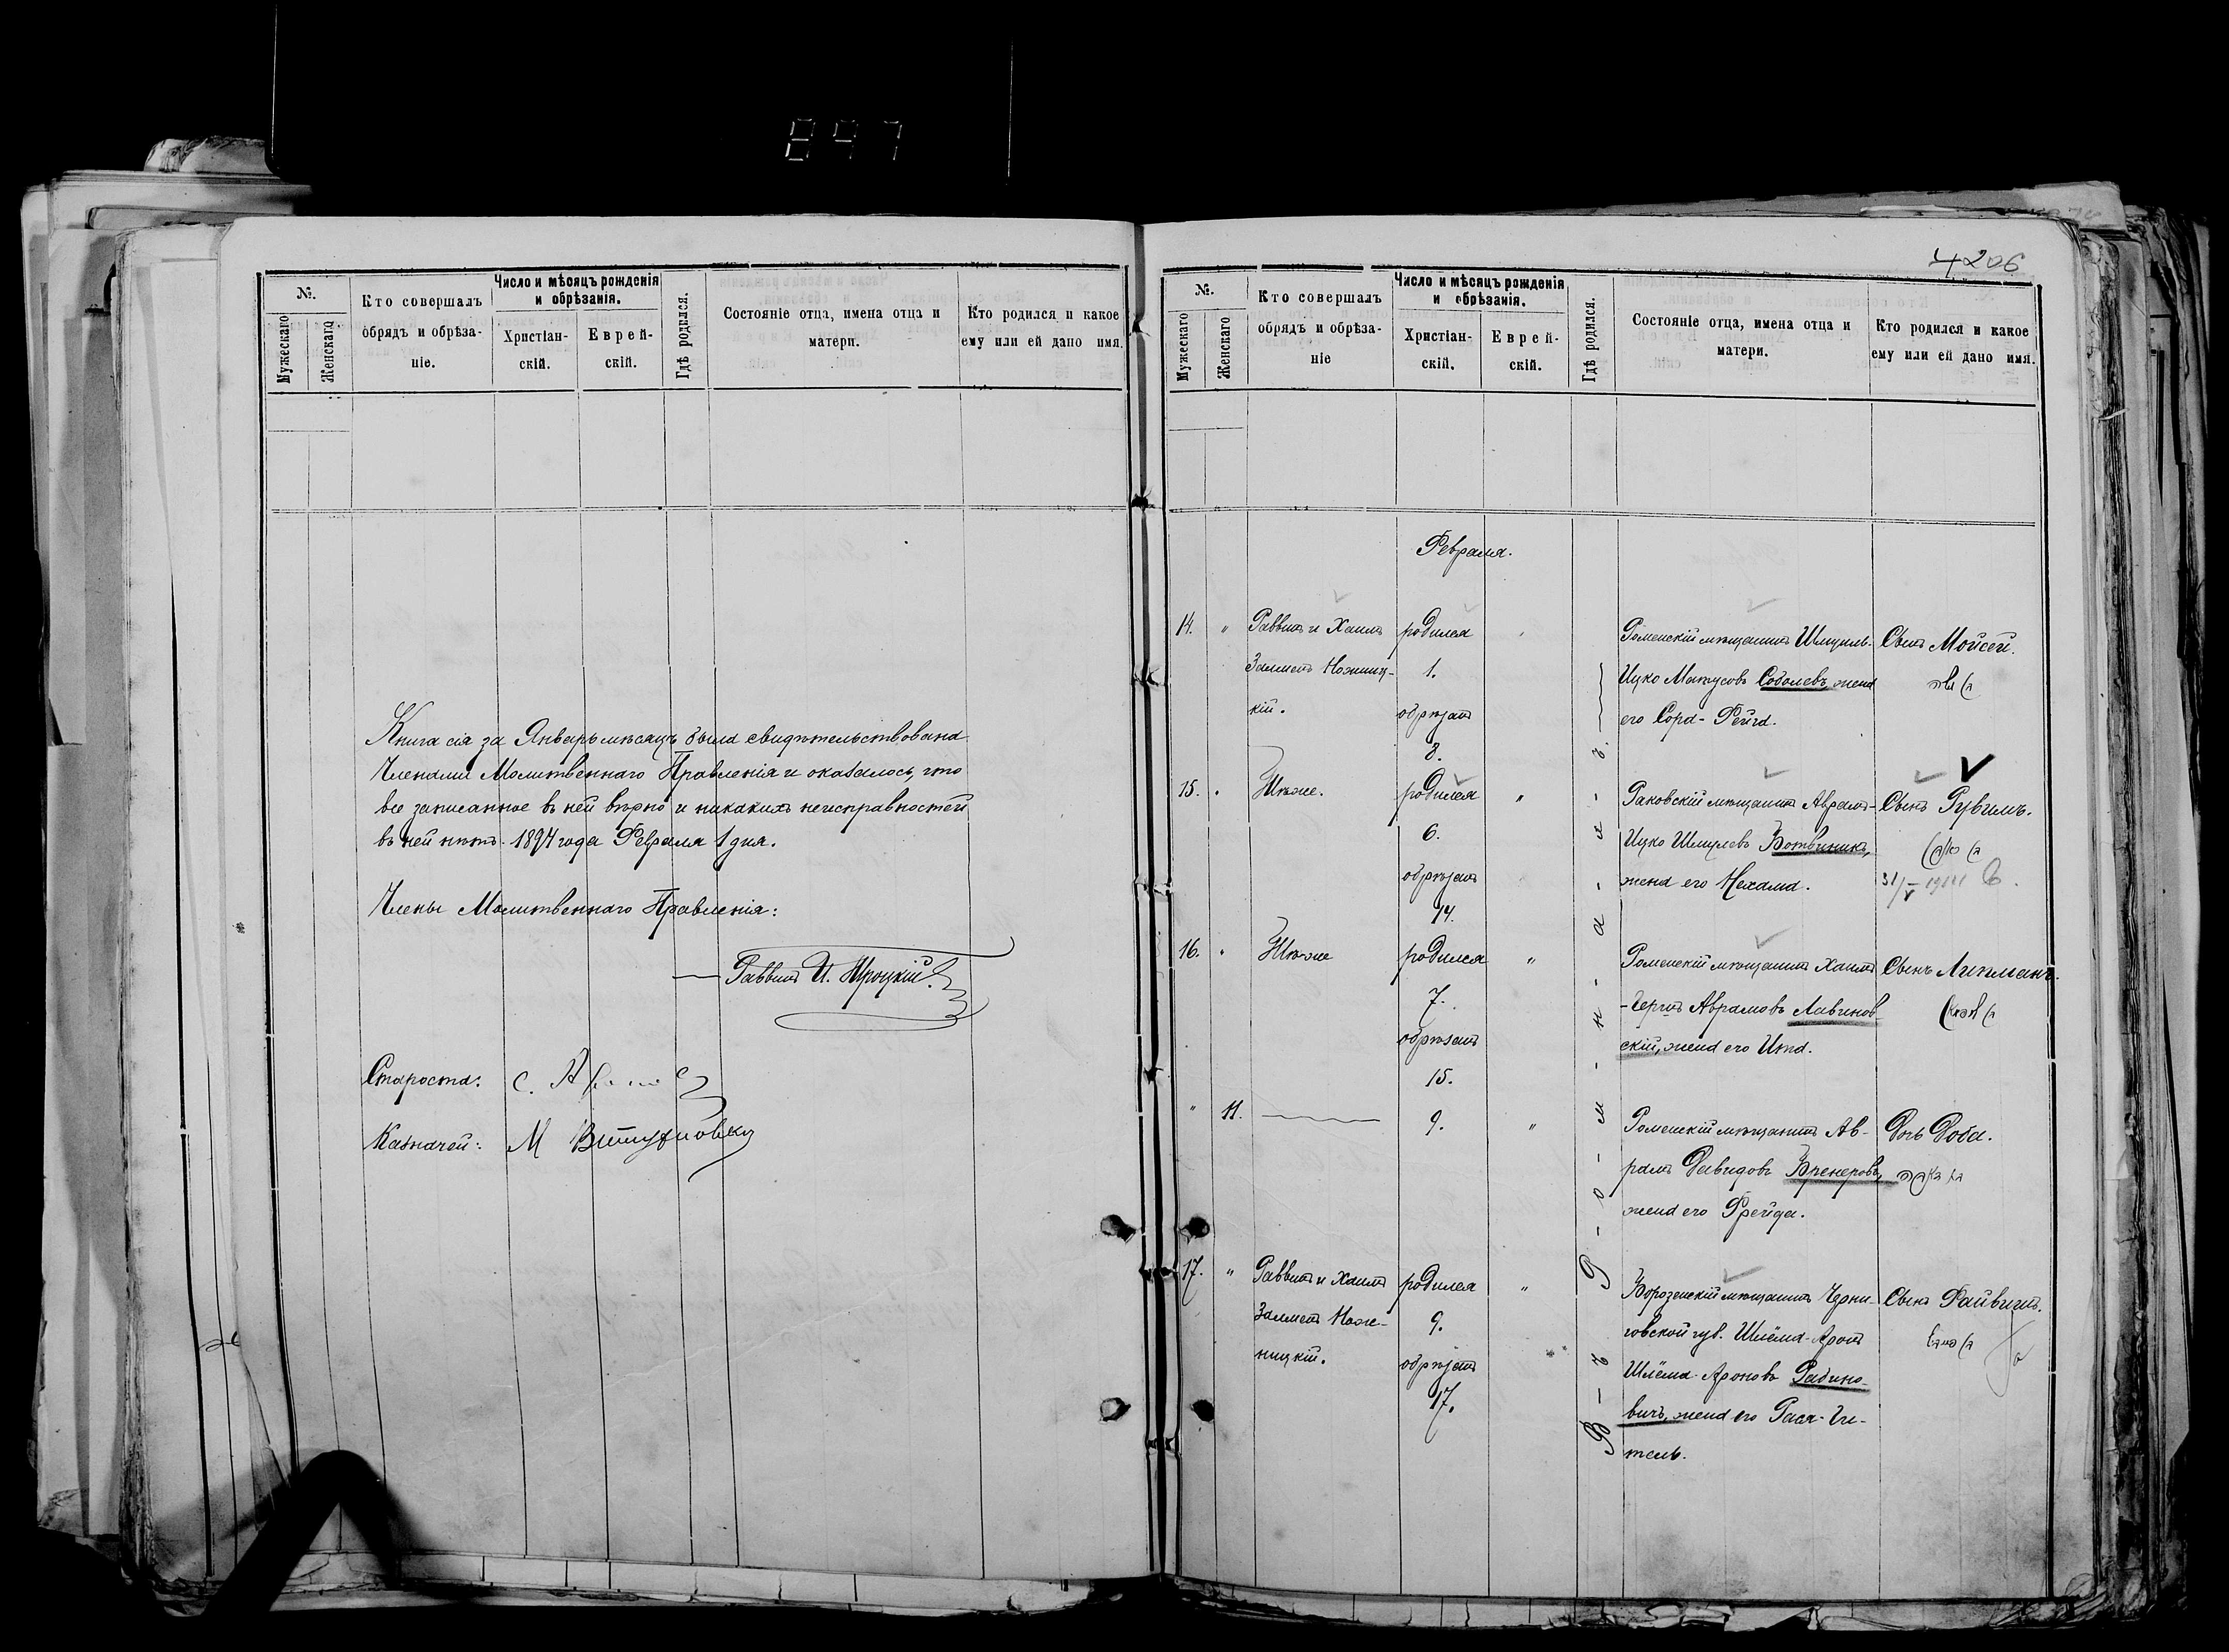 897
№.
Мужескаго
Женскаго
Кто совершалъ
обрядъ и обрѣза-
ніе.
Число и мѣсяцъ рожденія
и обрѣзанія.
Христіан-
скій.
Еврей-
скій.
Гдѣ родился.
Состояніе отца, имена отца и
матери.
Кто родился и какое
ему или ей дано имя.
Книга сія за Январь мѣсяцъ была свидѣтельствована
Членами Молитвеннаго Правленія и оказалось, что
все записанное въ ней вѣрно и никакихъ неисправностей
въ ней нѣтъ. 1894 года Февраля 1 дня.
Члены Молитвеннаго Правленія:
Раввинъ И.
Староста: С.
Казначей: М
4206
№.
Мужескаго
Женскаго
Кто совершалъ
обрядъ и обрѣза-
ніе
Число и мѣсяцъ рожденія
и обрѣзанія.
Христіан-
скій.
Еврей-
скій.
Гдѣ родился.
Состояніе отца, имена отца и
матери.
Кто родился и какое
ему или ей дано имя.
Февраля.
В-ъ Р-о-м-н-а-х-ъ.
14. " Раввинъ и Хаимъ
Залманъ Ножниц-
кій.
родился
1.
обрѣзанъ
8.
Роменскій мѣщанинъ Шмуиль-
Ицко Матусовъ Соболевъ, жена
его Сора-Рейза.
Сынъ Мойсей.
משה
15. " Тѣже.
родился "
6.
обрѣзанъ
14.
Раковскій мѣщанинъ Абрамъ-
Ицко Шмулевъ Ботвиникъ,
жена его Нехама.
Сынъ Рувимъ.
בן ראובן
16. " Тѣже
родился "
7.
обрѣзанъ
15.
Роменскій мѣщанинъ Хаимъ
-Герцъ Абрамовъ Лавинов-
скій, жена его Ита.
Сынъ Липманъ.
" 11. 9. "
Роменскій мѣщанинъ Аб-
рамъ Давидовъ Бренеровъ,
жена его Фрейда.
Дочь Доба.
17. " Раввинъ и Хаимъ
Залманъ Нож-
ницкій.
родился "
9.
обрѣзанъ
17.
Борозенскій мѣщанинъ Черни-
говской губ. Шлёма-Аронъ
Шлёма-Ароновъ Рабино-
вичъ, жена его Рася-Ги-
тель.
Сынъ Файвишъ.